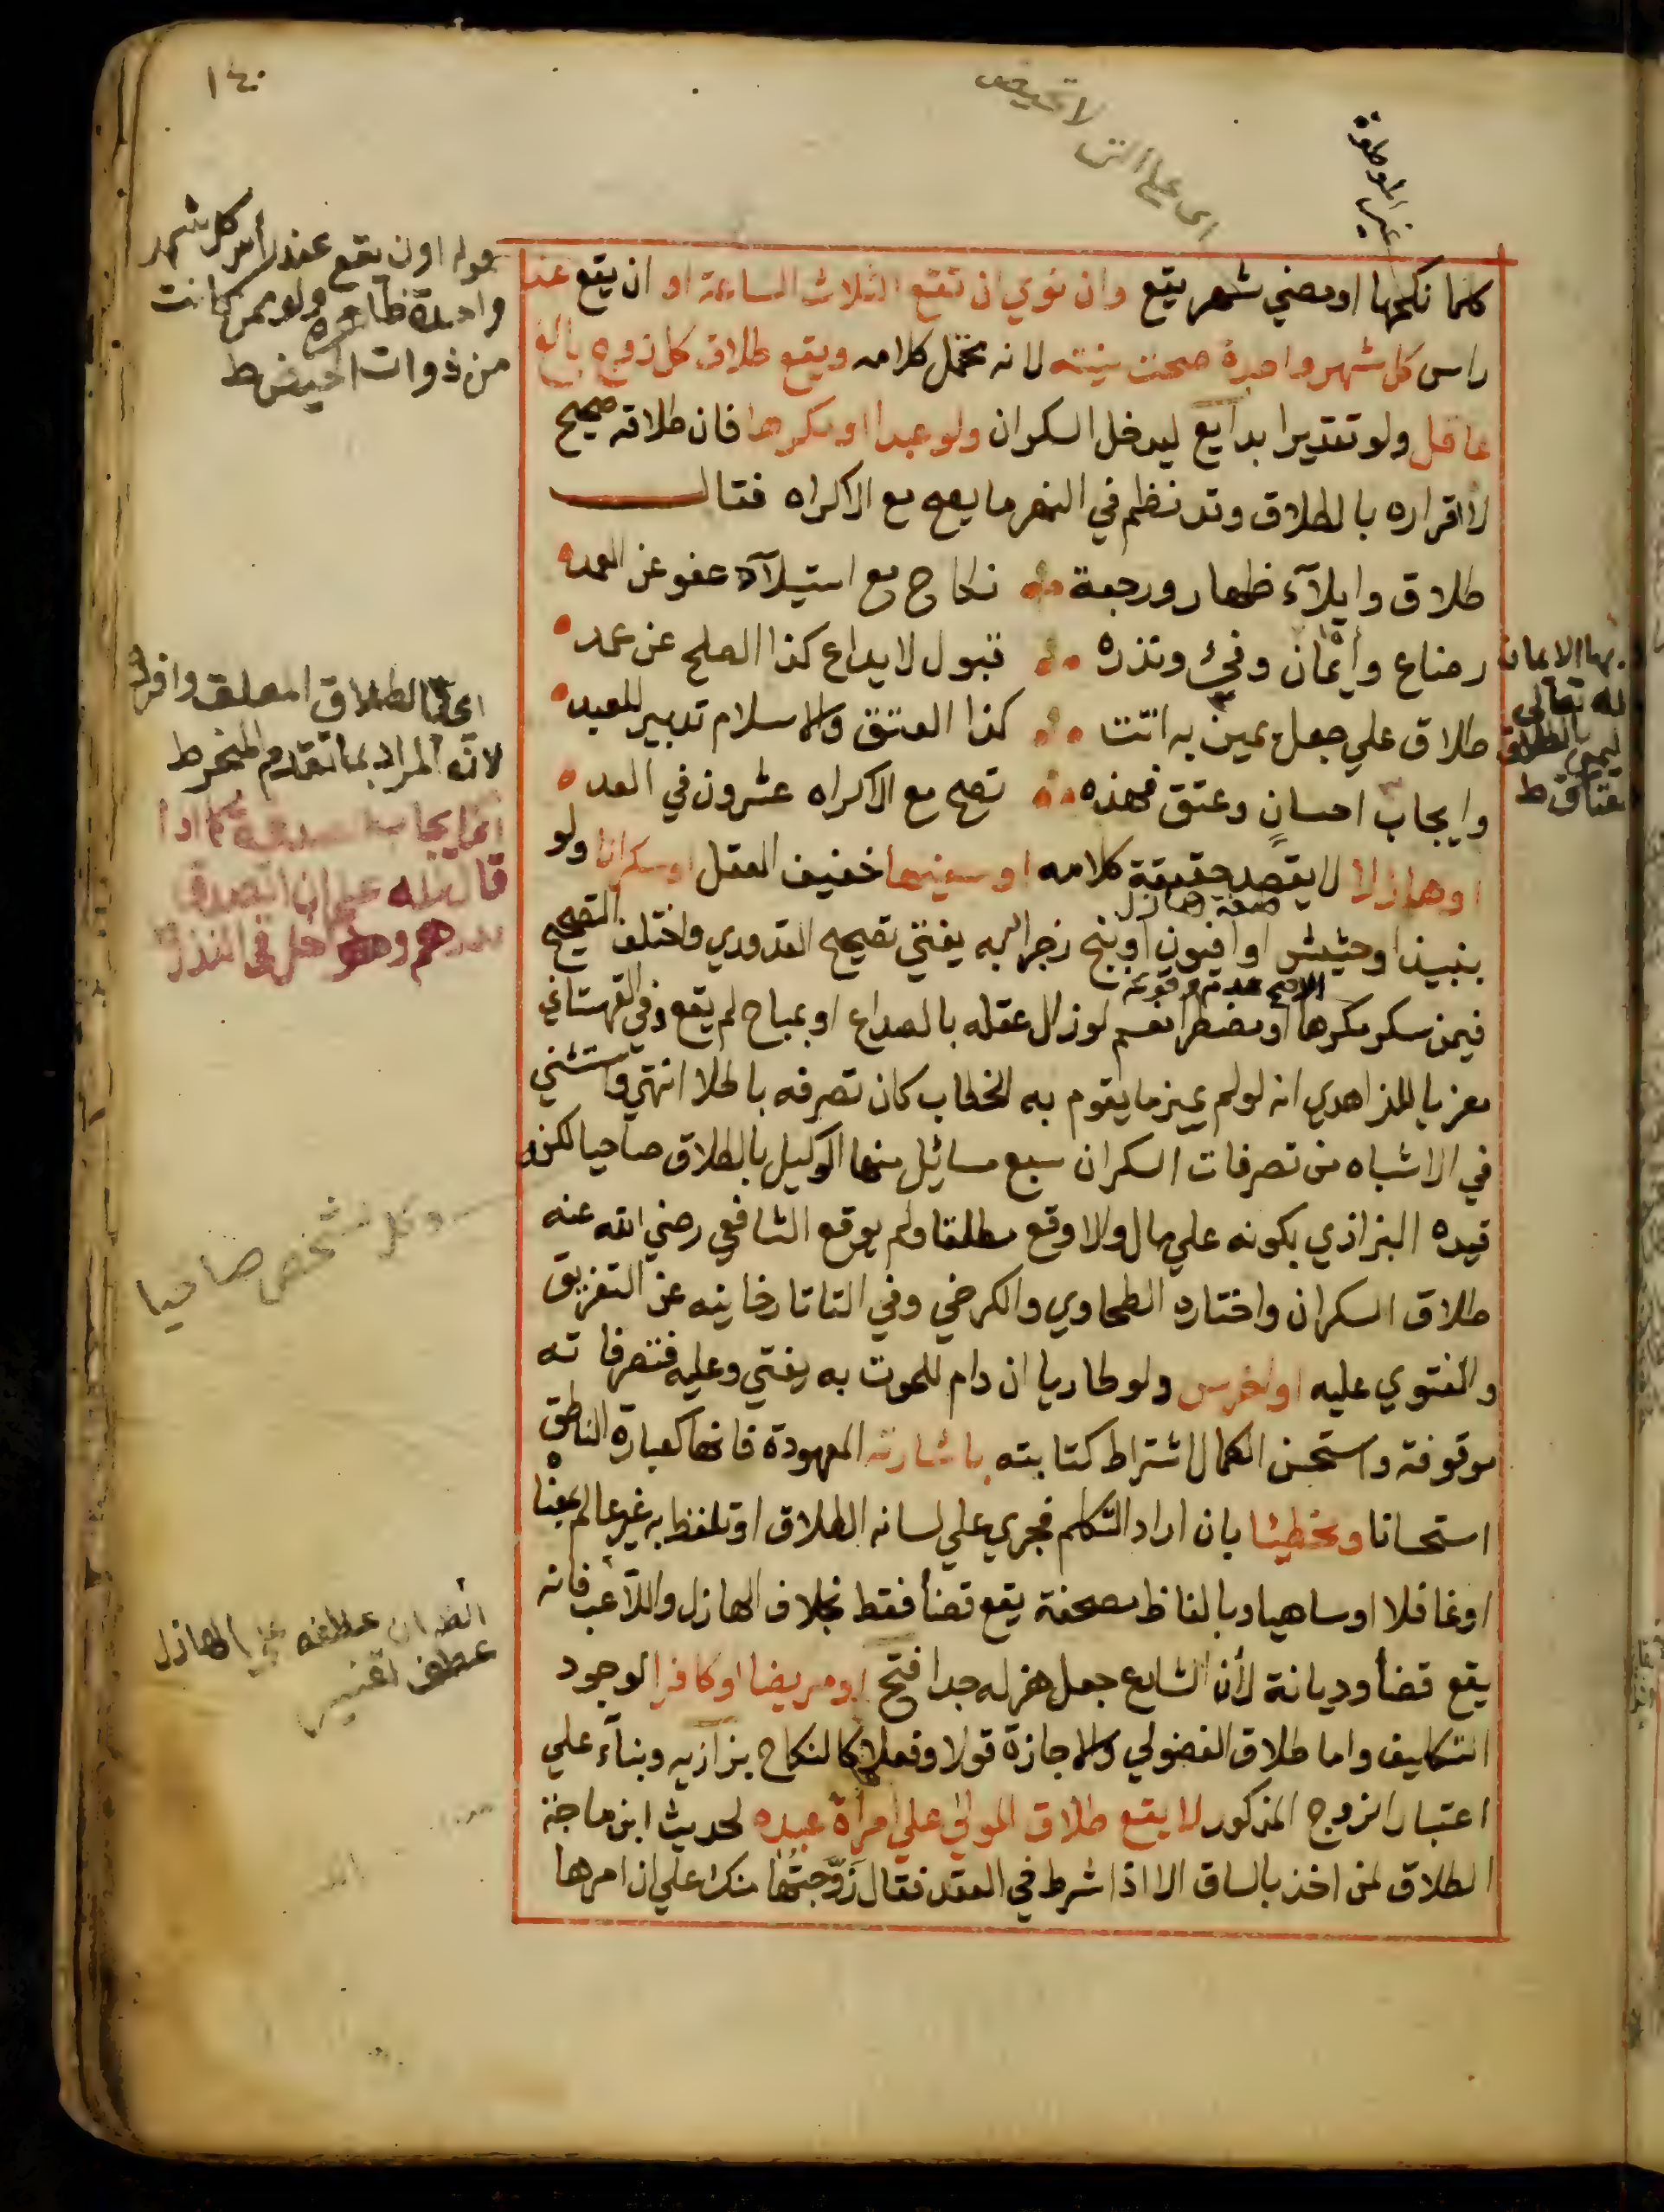 ١٤٠
اى على التى لا تحيض
غير الموطوة
كلما نكحها او مضي شهر يقع وان نوي ان تقع الثلاث الساعة او ان يقع عند
راس كل شهر واحدة صحت نيته لانه محتمل كلامه ويقع طلاق كل زوج بالغ
عاقل ولو تقديرا بدايع ليدخل السكران ولو عبدا او مكرها فان طلاقه صحيح
لا اقراره بالطلاق وقد نظم في النهر ما يصح مع الاكراه فقال
طلاق وايلآء ظهار ورجعة نكاح مع استيلآد عفو عن العمد
رضاع وأيمان وفيء ونذره قبول لايداع كذا الصلح عن عمد
طلاق علي جعل يمين به اتت كذا العتق والاسلام تدبير للعبد
وايجاب احسان وعتق فهذه تصح مع الاكراه عشرون في العد
او هازلا لا يقصد حقيقة كلامه او سفيها خفيف العقل او سكرانا ولو
بنبيذ او حشيش او افيون او بنج زجرا به يفتي تصحيح القدوري واختلف التصحيح
فيمن سكر مكرها او مضطرا نعم لو زال عقله بالصداع او بمباح لم يقع وفي القهستاني
معزيا للزاهدي انه لو لم يميز ما يقوم به الخطاب كان تصرفه باطلا انتهي واستثني
في الاشباه من تصرفات السكران سبع مسائل منها الوكيل بالطلاق صاحيا لكن
قيده البزازي بكونه علي مال والا وقع مطلقا ولم يوقع الشافعي رضي الله عنه
طلاق السكران واختاره الطحاوي والكرخي وفي التاتارخانيه عن التفريق
والفتوي عليه او اخرس ولو طاريا ان دام للموت به يفتي وعليه فتصرفاته
موقوفة واستحسن الكمال اشتراط كتابته باشارته المعهودة فانها كعبارة الناطق
استحسانا او مخطيئا بان اراد التكلم فجري علي لسانه الطلاق او تلفظ به غير عالم بمعناه
او غافلا او ساهيا او بالفاظ مصحفة يقع قضأ فقط بخلاف الهازل واللاعب فانه
يقع قضأ وديانة لأن الشارع جعل هزله جدا فتح او مريضا او كافرا لوجود
التكليف واما طلاق الفضولي والاجازة قولا وفعلا كالنكاح بزازيه وبنآء علي
اعتبار الزوج المذكور لا يقع طلاق المولي علي امرأة عبده لحديث ابن ماجة
الطلاق لمن اخذ بالساق الا اذا شرط في العقد فقال زوجتها منك علي ان امرها
قوله او ان يقع عند رأس كل شهر
واحدة ظاهره ولو ممن كانت
من ذوات الحيض ط
اى على الطلاق المعلق وافرده
لانه المراد بما تقدم المنخرط
اى ايجاب الصدقة كما اذا
قال لله على ان اتصدق
بدرهم وهو داخل فى النذر
وكل شخص صاحيا
انظر ان عطفه على الهازل
عطف تفسير